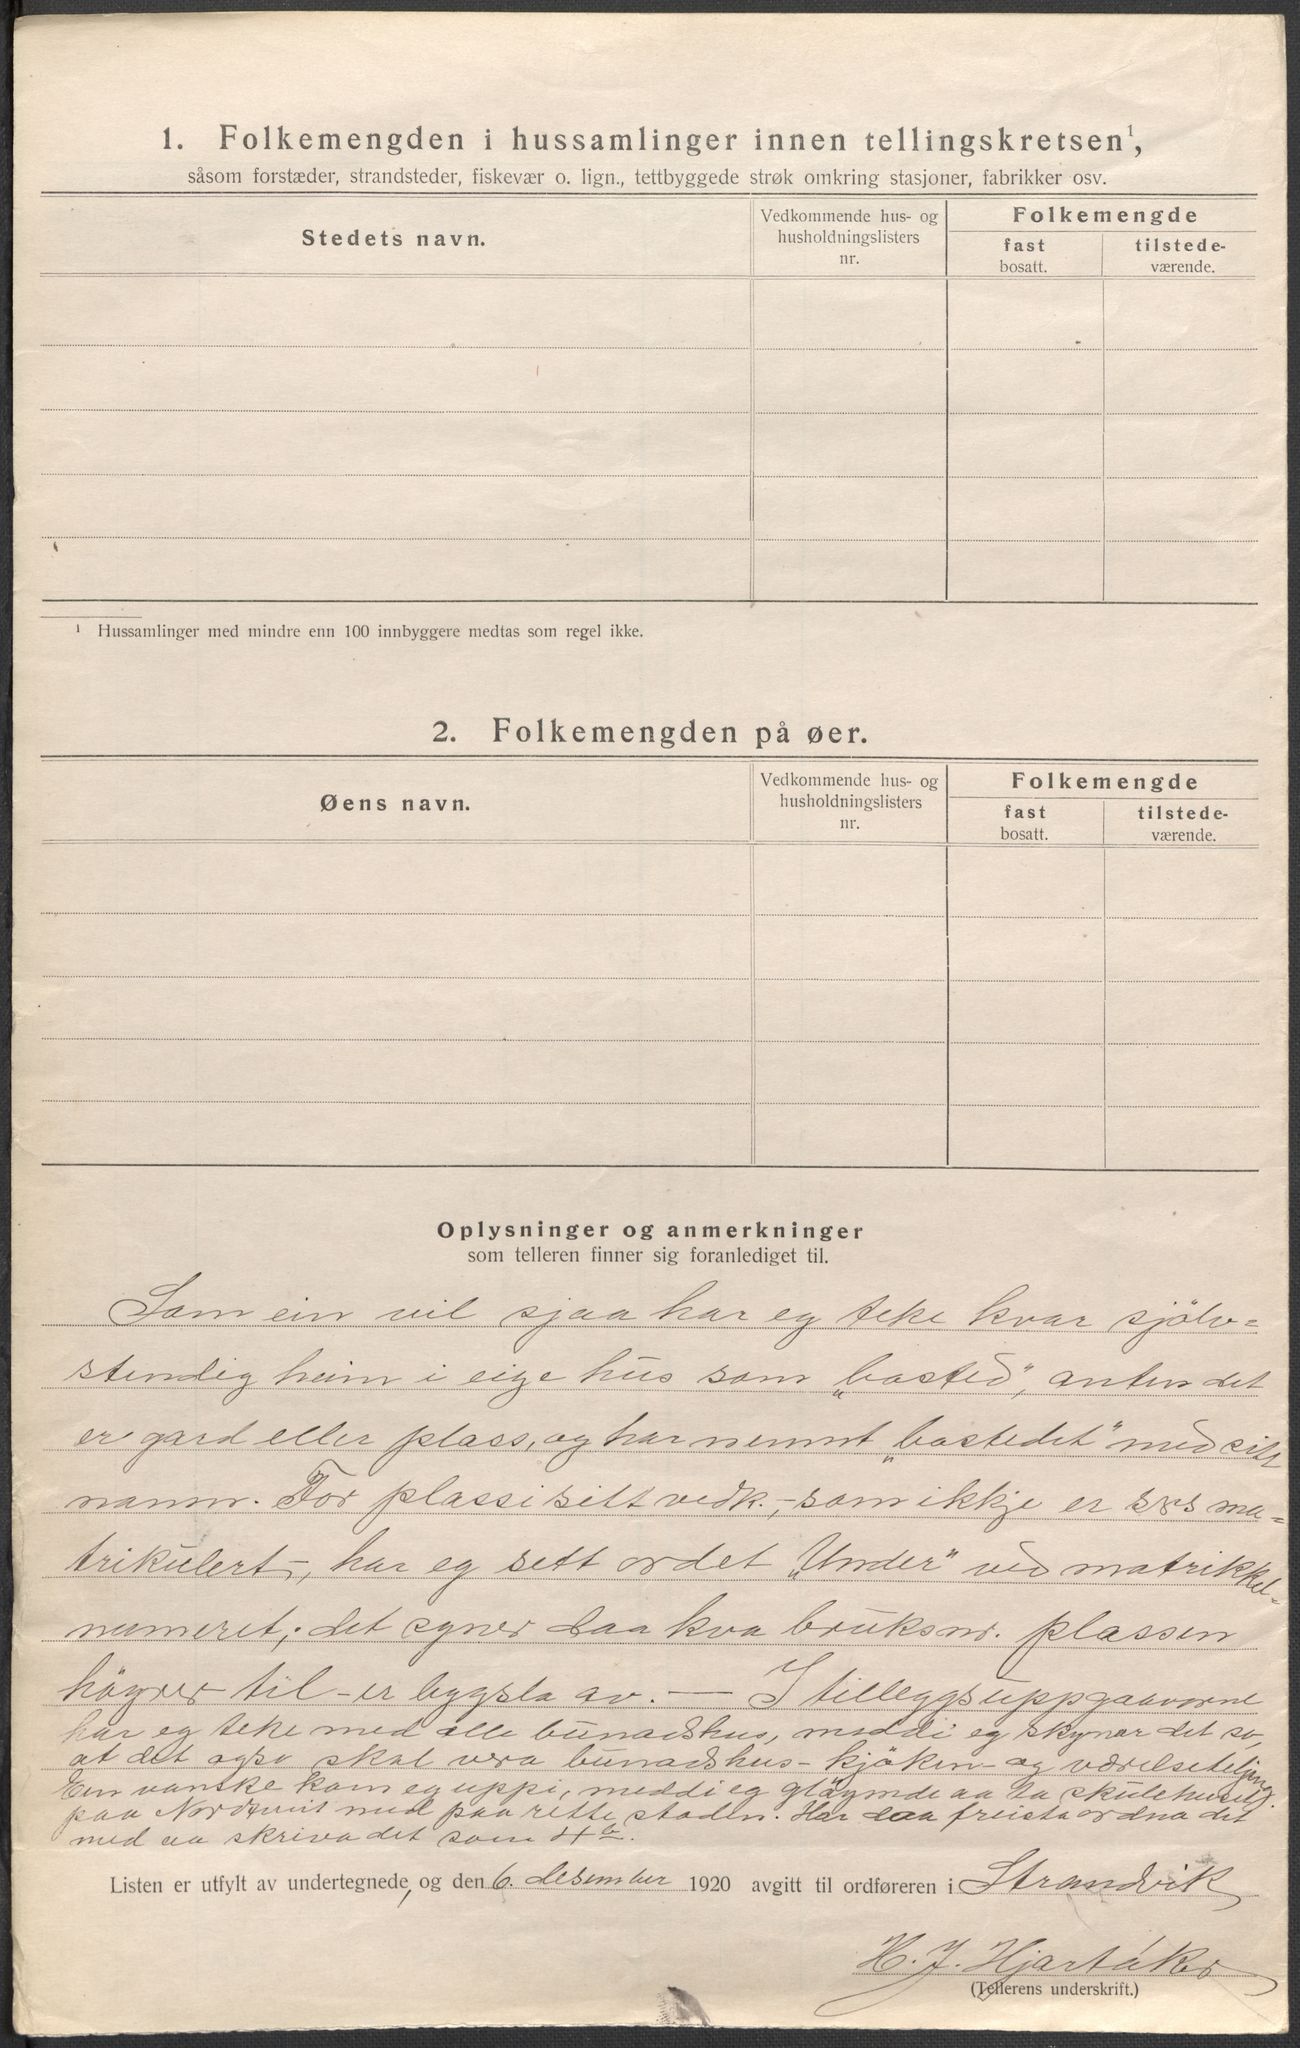 1. Folkemengden i hussamlinger innen tellingskretsen¹,
såsom forstæder, strandsteder, fiskevær o. lign., tettbyggede strøk omkring stasjoner, fabrikker osv.
Stedets navn.
Vedkommende hus- og
husholdningslisters
nr.
Folkemengde
fast
bosatt.
tilstede-
værende.
¹ Hussamlinger med mindre enn 100 innbyggere medtas som regel ikke.
2. Folkemengden på øer.
Øens navn.
Vedkommende hus- og
husholdningslisters
nr.
Folkemengde
fast
bosatt.
tilstede-
værende.
Oplysninger og anmerkninger
som telleren finner sig foranlediget til.
Som ein vil sjaa har eg teke kvar sjölv=
stendig heim i eige hus som „bosted", anten det
er gard eller plass, og har nemnt „bostedet" med sitt
namn. For plassi sitt vedk., - som ikkje er sers ma=
trikulert -, har eg sett ordet „Under" ved matrikkel-
numeret; det syner daa kva bruksnr. plassen
höyrer til - er bygsla av. — I tilleggsuppgaavorne
har eg teke med alle bunadshus, meddi eg skynar det so,
at det ogso skal vera bunadshus - kjöken - og værelseteljing.
Ein vanske kom eg uppi, meddi eg gløymde aa ta skulehuset
paa Nordtveit med paa rette staden. Har daa freista ordna det
med aa skriva det som 4b.
Listen er utfylt av undertegnede, og den 6. desember 1920 avgitt til ordføreren i Strandvik
H. J. Hjartåker
(Tellerens underskrift.)